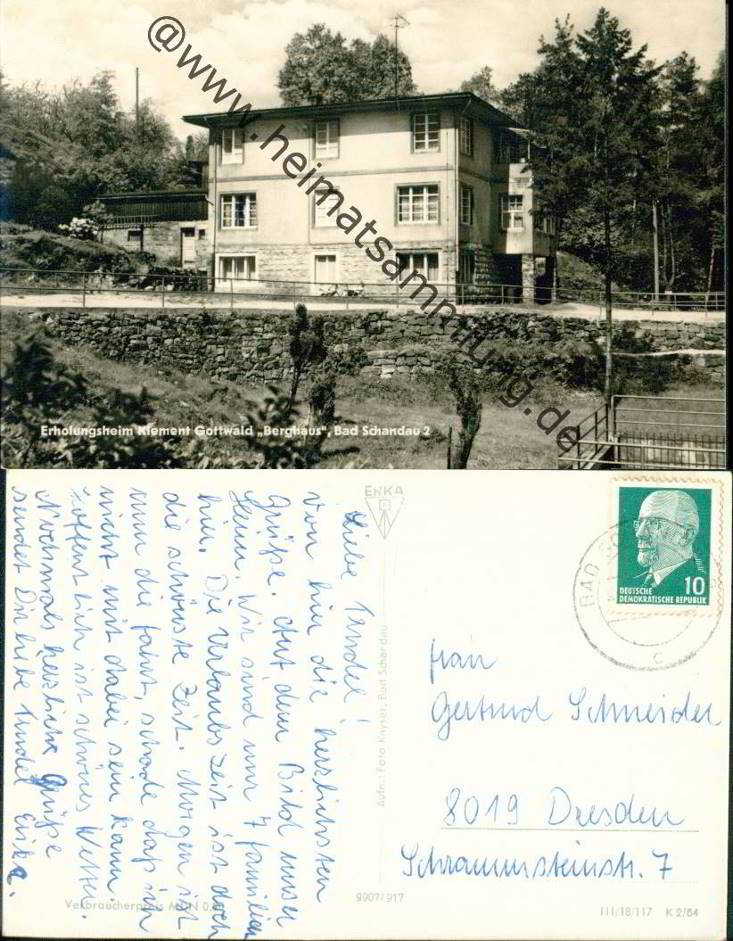 @www.heimatsammlung.de
Erholungsheim Klement Gottwald „Berghaus", Bad Schandau 2
ENKA
Liebe Trudel!
Von hier die herzlichsten
Grüße. Auf dem Bild unser
Heim. Wir sind nur 7 Familien
hier. Die Urlaubszeit ist doch
die schönste Zeit. Morgen ist
nun die Fahrt, schade daß ich
nicht mit dabei sein kann.
Hoffentlich ist schönes Wetter.
Nochmals herzliche Grüße
sendet Dir liebe Trudel Erika.
Aufn.: Foto Kayser, Bad Schandau
BAD SC
c
10
DEUTSCHE
DEMOKRATISCHE REPUBLIK
Frau
Gertrud Schneider
8019 Dresden
Schrammsteinstr. 7
Verbraucherpreis MDN 0,
9907/917
III/18/117 K 2/64